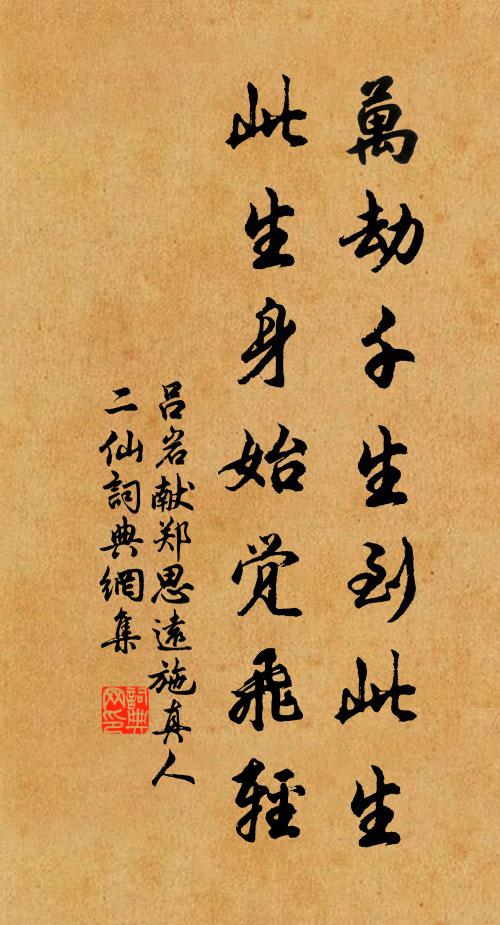 萬劫千生到此生
此生身始觉飛輕
吕岩献郑思遠施真人
二仙詞典網集
詞典网印